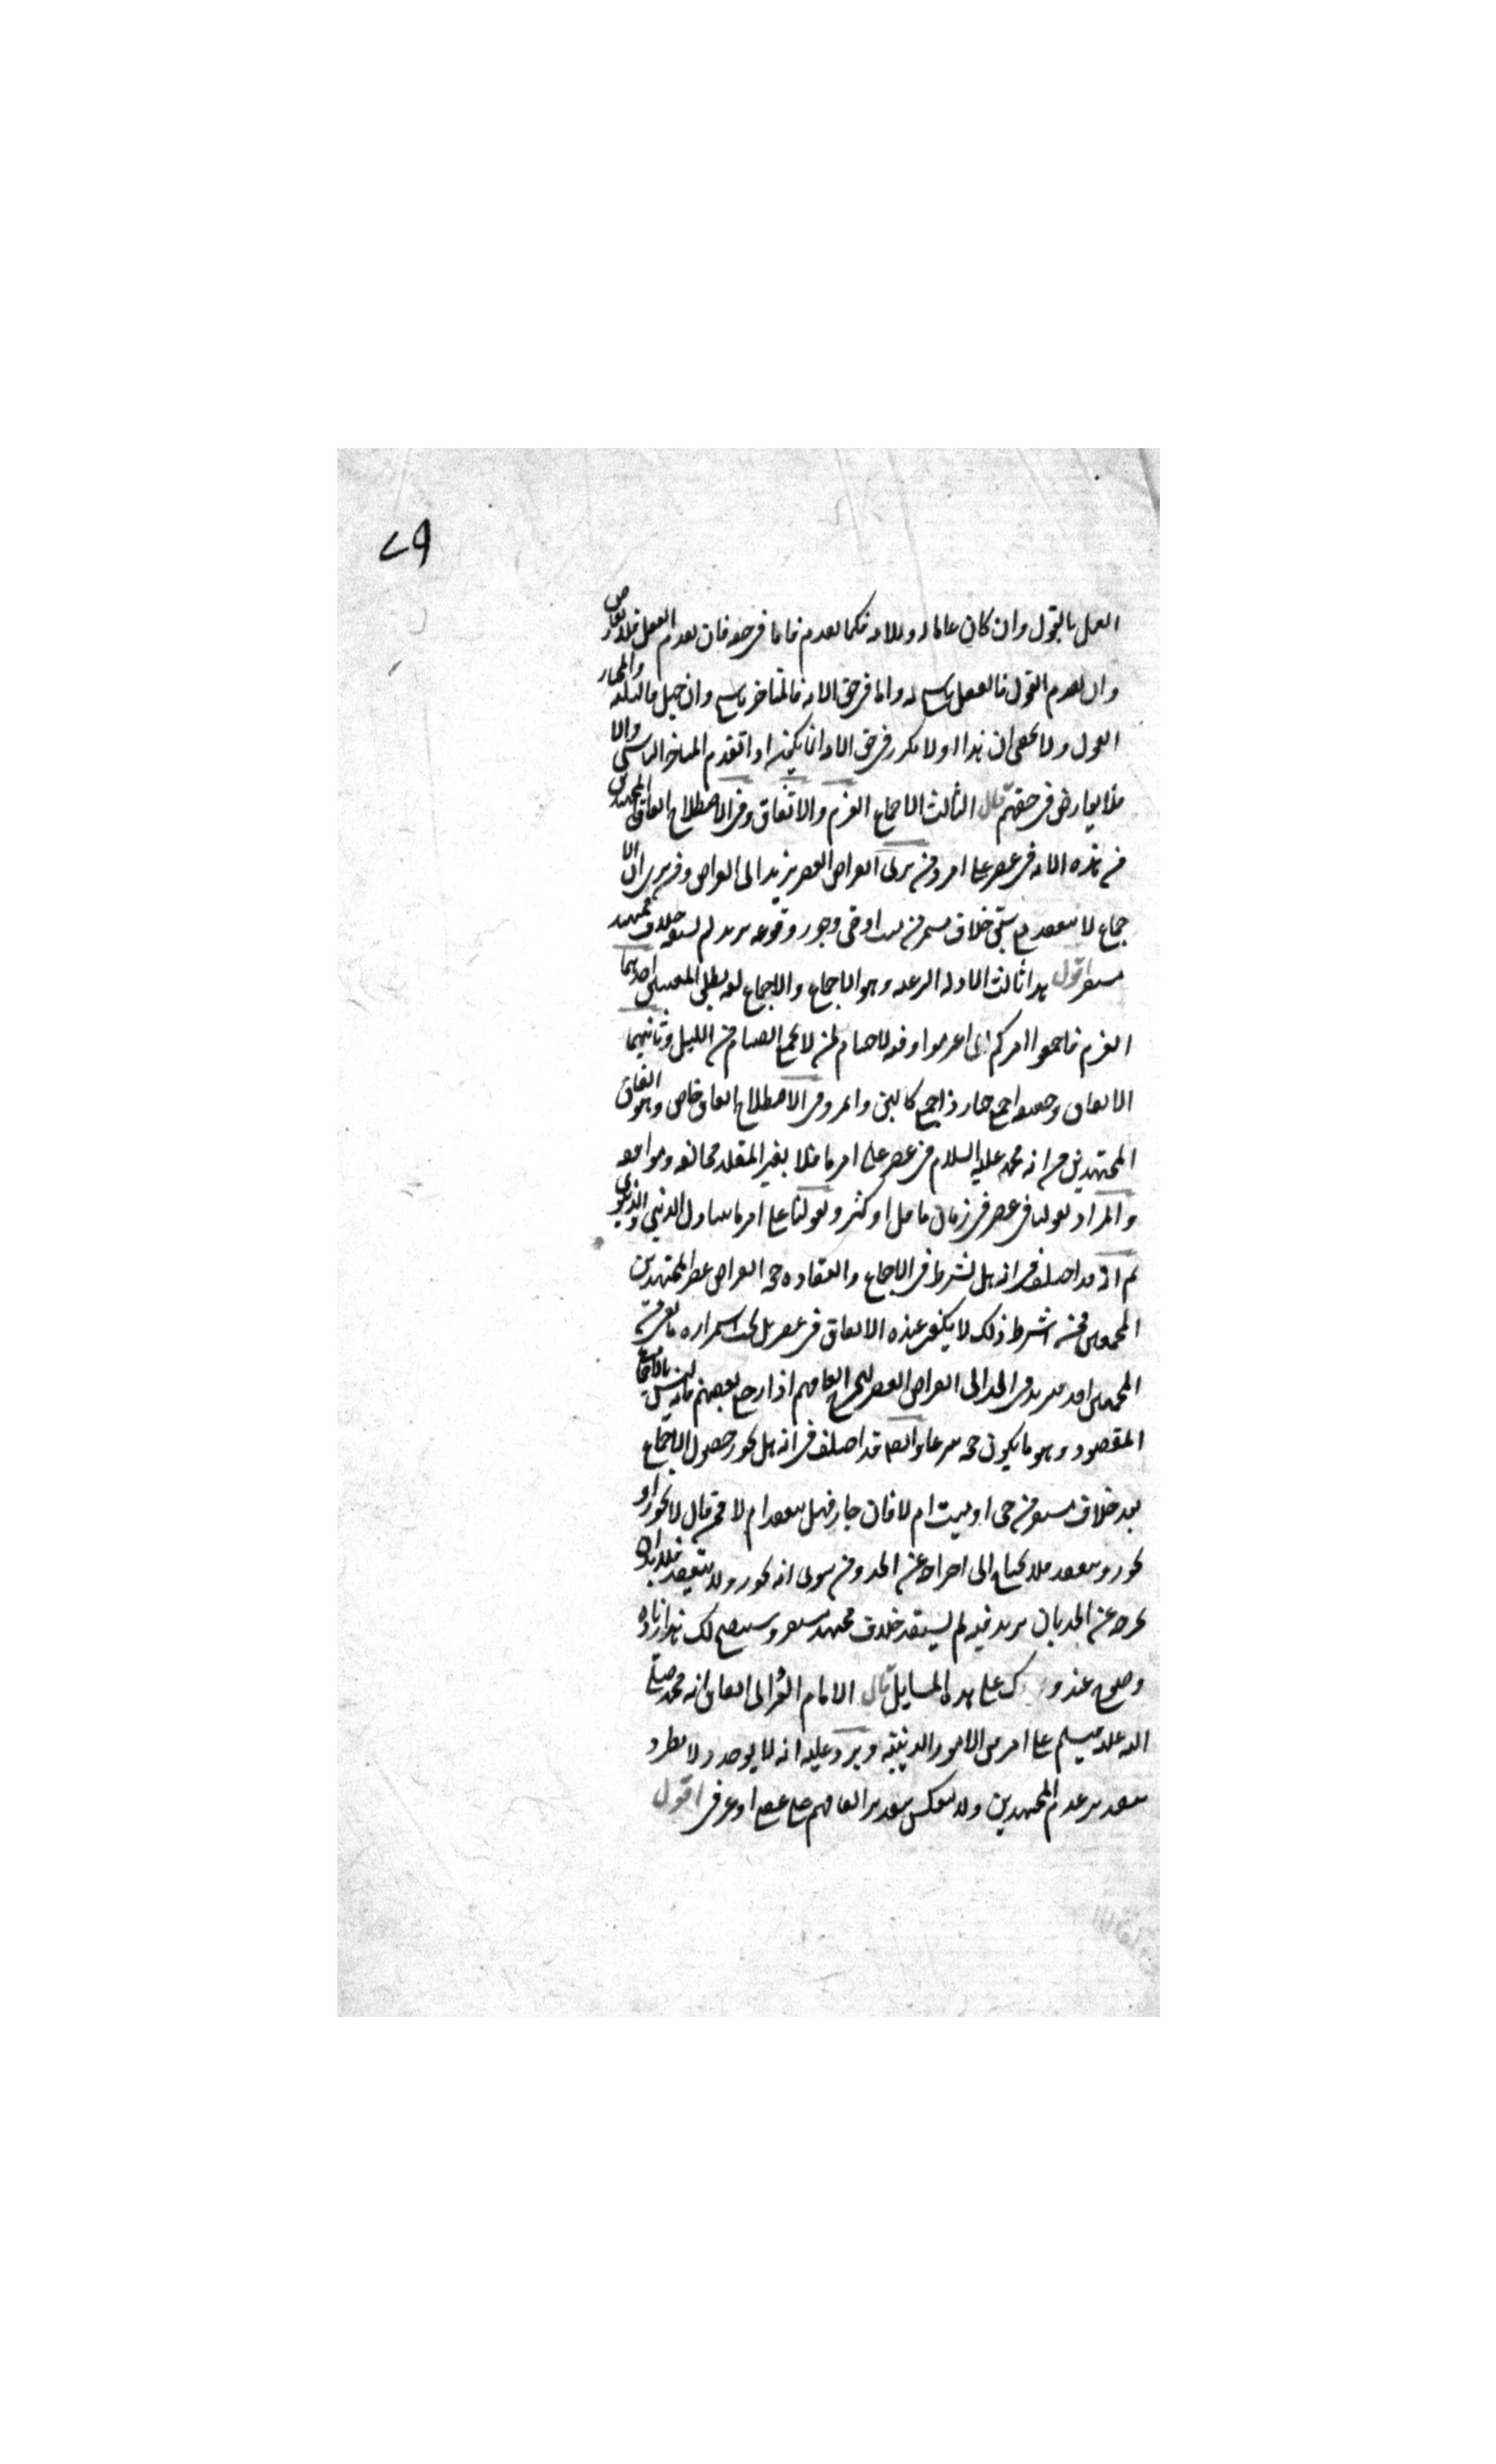 ٧٩
العمل بالقول وان كان عاما له وللامة فكما تقدم فاما في حقه فان تقدم الفعل فلا تعارض
وان تقدم القول فالفعل ناسخ له واما في حق الامة فالمتاخر ناسخ وان جهل فالثلثة والمختار
القول ولا يخفى ان هذا اولا تكرر في حق الامة انما يمكن اذا تقدم المتاخر التاسي والا
فلا يعارض في حقهم قال الثالث الاجماع العزم والاتفاق وفي الاصطلاح اتفاق المجتهدين
من هذه الامة في عصر على امر ومن يرى انقراض العصر يزيد الى انقراض وفي يرى ان الا
جماع لا ينعقد مع سبق خلاف مستمر من ميت او حي وجوز وقوعه يزيد لم يسبقه خلاف مجتهد
مستقر اقول هذا ثالث الادلة الشرعية وهو الاجماع والاجماع لغة يطلق لمعنيين احدهما
العزم فاجمعوا امركم اي اعزموا وقوله لا صيام لمن لا يجمع الصيام من الليل وثانيهما
الاتفاق وحقيقته اجمع صار ذا جمع كالبن واتمر وفي الاصطلاح اتفاق خاص وهو اتفاق
المجتهدين من امة محمد عليه السلام في عصر على امر ما فلا يعتبر المقلد مخالفة وموافقة
والمراد بقولنا في عصر في زمان ما قل او كثر وقولنا على امر ما يتناول الديني والدنيوي
ثم انه قد اختلف في انه هل يشترط في الاجماع وانعقاده حجة انقراض عصر المجتهدين
المجمعين فمن اشترط ذلك لا يكفي عنده الاتفاق في عصر بل يجب استمراره ما بقي من
المجمعين احد يزيد في الحد الى انقراض العصر ليخرج اتفاقهم اذا رجع بعضهم فانه ليس بالاجماع
المقصود وهو ما يكون حجة شرعا وايضا قد اختلف في انه هل يجوز حصول الاجماع
بعد خلاف مستقر من حي او ميت ام لا فان جاز فهل ينعقد ام لا فمن قال لا يجوز او
يجوز وينعقد فلا يحتاج الى اخراجه عن الحد ومن يرى انه يجوز ولا ينعقد فلا بد ان
يخرجه عن الحد بان يزيد فيه لم يسبقه خلاف مجتهد مستقر وسيتضح لك هذا زيادة
وضوح عند على هذه المسايل قال الامام الغزالي اتفاق امة محمد صلى
الله عليه وسلم على امر من الامور الدينية ويرد عليه انه لا يوجد ولا يطرد
بتقدير عدم المجتهدين ولا ينعكس بتقدير اتفاقهم على عقلي او عرفي اقول